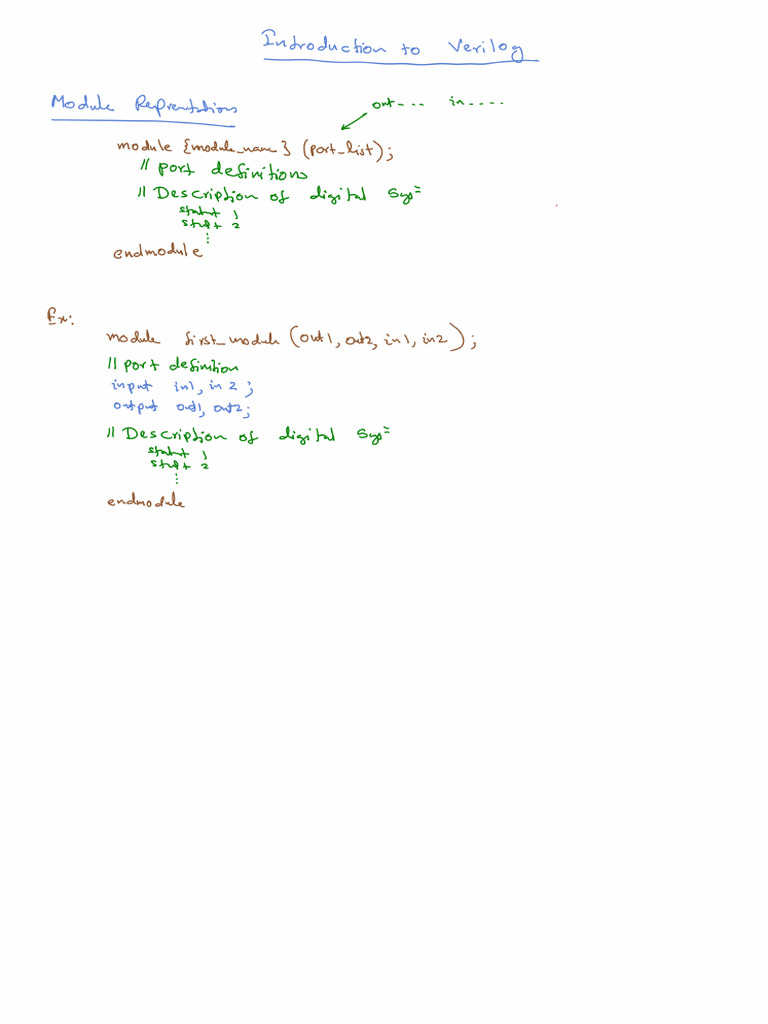 Introduction to Verilog
Module Reprentations
out--- in----
module {module_name} (port_list);
// port definitions
// Description of digital Sys=
statmt 1
stmt 2
⋮
endmodule
Ex:
module first_module (out1, out2, in1, in2);
// port definition
input in1, in2;
output out1, out2;
// Description of digital Sys=
statmt 1
stmt 2
⋮
endmodule